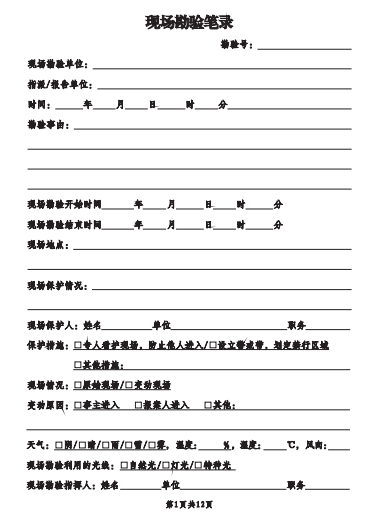 现场勘验笔录
勘验号：
现场勘验单位：
指派/报告单位：
时间： 年 月 日 时 分
勘验事由：
现场勘验开始时间 年 月 日 时 分
现场勘验结束时间 年 月 日 时 分
现场地点：
现场保护情况：
现场保护人：姓名 单位 职务
保护措施：□专人看护现场，防止他人进入/□设立警戒带，划定禁行区域
□其他措施：
现场情况：□原始现场/□变动现场
变动原因：□事主进入 □报案人进入 □其他：
天气：□阴/□晴/□雨/□雪/□雾，湿度： %，温度： ℃，风向：
现场勘验利用的光线：□自然光/□灯光/□特种光
现场勘验指挥人：姓名 单位 职务
第1页共12页